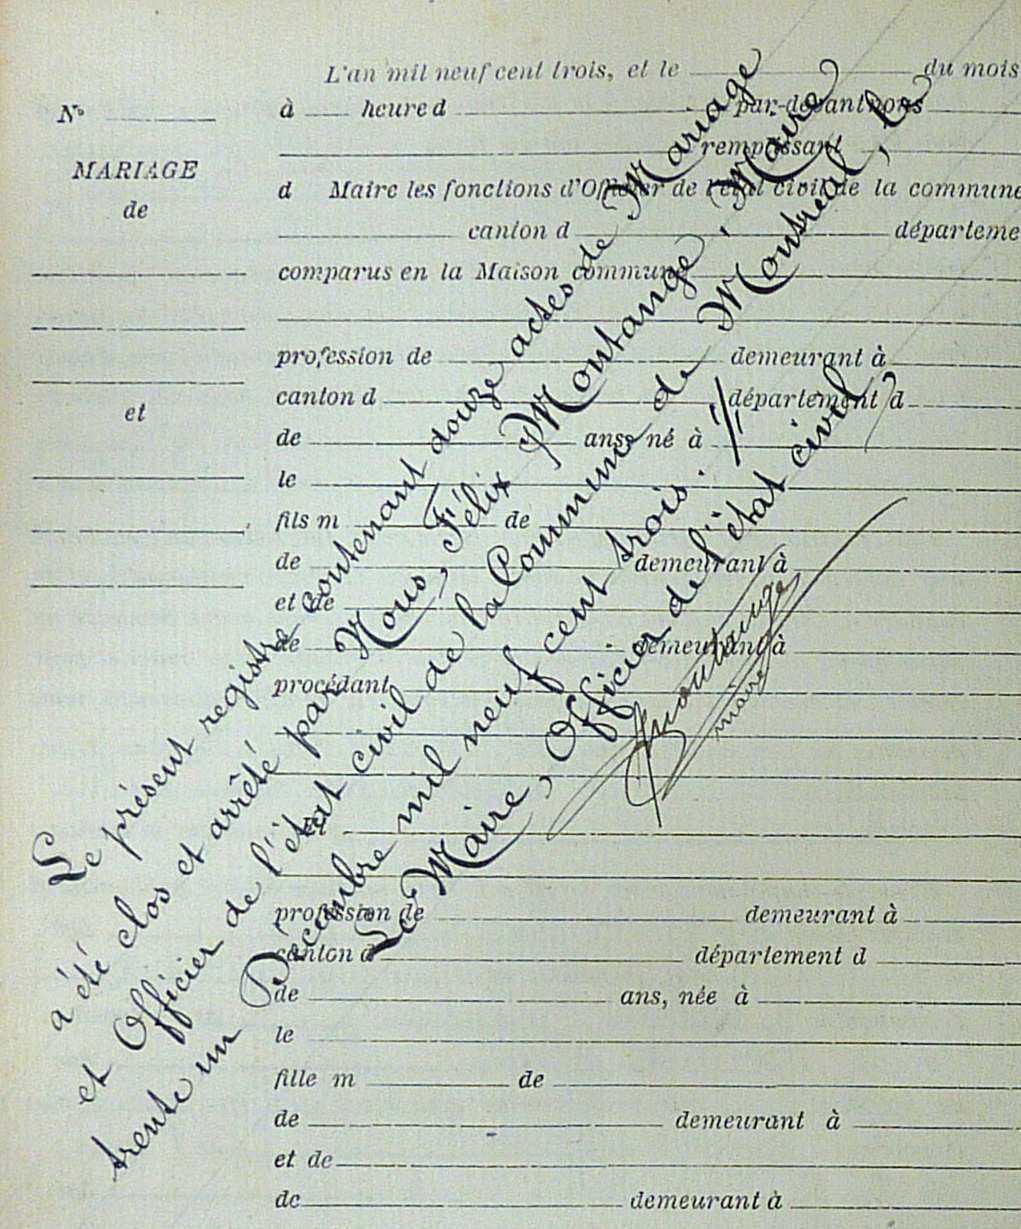 L'an mil neuf cent trois, et le du mois
N° à heure d par-devant nous
remplissant
MARIAGE
d Maire les fonctions d'Officier de l'état civil de la commune
de
canton d départeme
comparus en la Maison commune
profession de demeurant à
canton d département d
et
de ans, né à
le
fils m de
de demeurant à
et de
de demeurant à
procédant
Et
profession de demeurant à
canton d département d
de ans, née à
le
fille m de
de demeurant à
et de
de demeurant à
Le présent registre contenant douze actes de Mariage
a été clos et arrêté par Nous, Félix Montange, Maire
et Officier de l'état civil de la Commune de Montréal, le
trente un Décembre mil neuf cent trois.
Le Maire, Officier de l'état civil,
Montange
maire